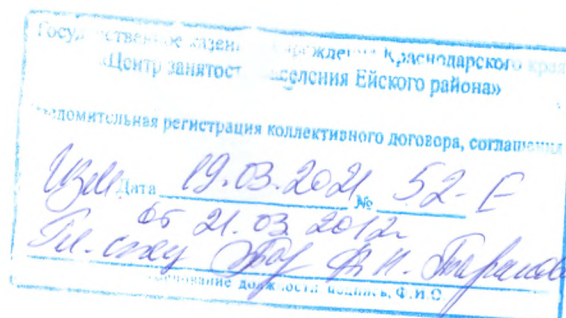 Государственное казенное учреждение Краснодарского края
«Центр занятости населения Ейского района»
Уведомительная регистрация коллективного договора, соглашения
Изм. Дата 19.03.2021 № 52-Е
от 21.03.2012г
Гл. спец
должности подпись, Ф.И.О